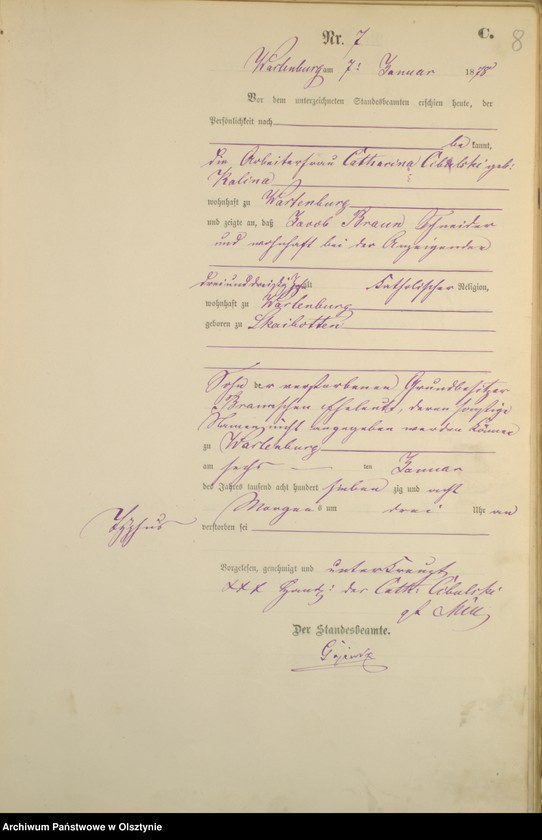 C.
8
Nr. 7
Wartenburg am 7: Januar 1878
Vor dem unterzeichneten Standesbeamten erschien heute, der
Persönlichkeit nach
be kannt,
die Arbeiterfrau Catharina Cibulski geb:
Kalina
wohnhaft zu Wartenburg
und zeigte an, daß Jacob Braun Schneider
und wohnhaft bei der Anzeigenden
dreiunddreizig J. alt katholischer Religion,
wohnhaft zu Wartenburg
geboren zu Skaibotten
Sohn der verstorbenen Grundbesitzer
Braunschen Eheleute, deren sonstige
Namen nicht angegeben werden können
zu Wartenburg
am sechs ten Januar
des Jahres tausend acht hundert sieben zig und acht
Morgens um drei Uhr an
Typhus
verstorben sei
Vorgelesen, genehmigt und unterkreuzt
+++ Handz: der Cath: Cibulski
Der Standesbeamte.